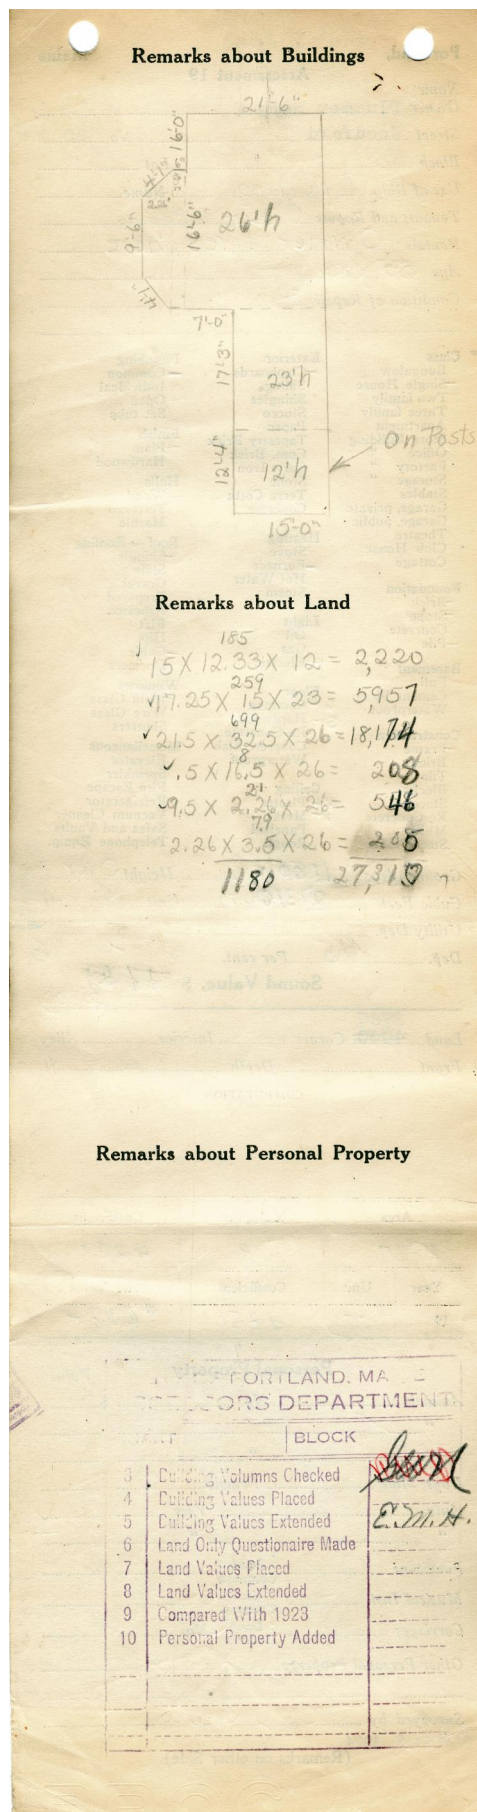 Remarks about Buildings
21'-6"
16'-0"
4'-9"
2.26
9'-6"
16'-6"
26'h
4'-1"
7'-0"
17'-3"
23'h
On Posts
12'-4"
12'h
15'-0"
Remarks about Land
185
15 X 12.33 X 12 = 2,220
259
17.25 X 15 X 23 = 5,957
699
21.5 X 32.5 X 26 = 18,174
8
.5 X 16.5 X 26 = 208
21
9.5 X 2.26 X 26 = 546
7.9
2.26 X 3.5 X 26 = 205
1180 27,310
Remarks about Personal Property
PORTLAND, MA
DEPARTMENT
BLOCK
3 Building Volumns Checked
4 Building Values Placed
5 Building Values Extended E.M.H.
6 Land Only Questionaire Made
7 Land Values Placed
8 Land Values Extended
9 Compared With 1923
10 Personal Property Added